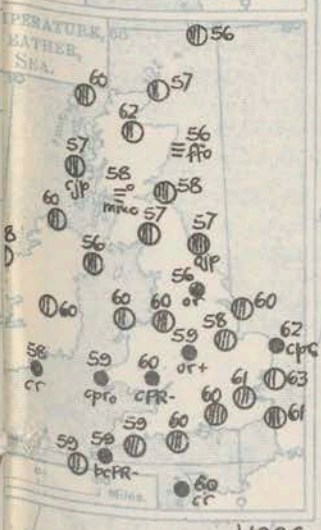 TEMPERATURE,
WEATHER,
SEA.
56
60
57
62
56
ffo
57
qjp
58
mmo
58
60
57
57
qjp
56
56
or
60
60
60
60
58
62
cpr
58
cr
59
cpro
60
CPR-
59
or+
63
61
60
61
59
59
60
59
bcPR-
60
cr
Miles.